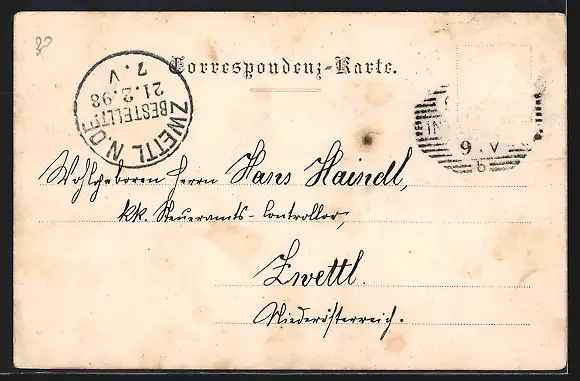 20
Correspondenz-Karte.
ZWETTL N.OE.
BESTELLT
21.2.98
7.V
IN
9.V
b
Wohlgeboren Herrn Hans Haindl,
kk. Steueramts-Controllor,
Zwettl.
Niederösterreich.